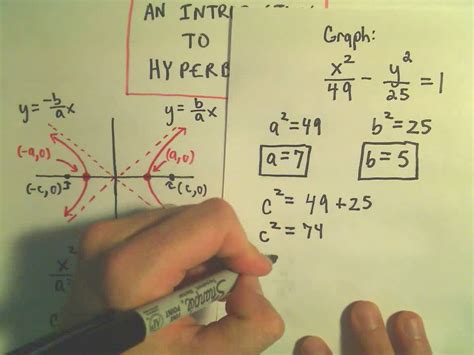 AN INTR
TO
HYPERB
y = -b/a x
y = b/a x
(-a,0)
(a,0)
(-c,0)
(c,0)
x²
a²
c
Graph:
x²/49 - y²/25 = 1
a² = 49
b² = 25
a = 7
b = 5
c² = 49 + 25
c² = 74
Sharpie